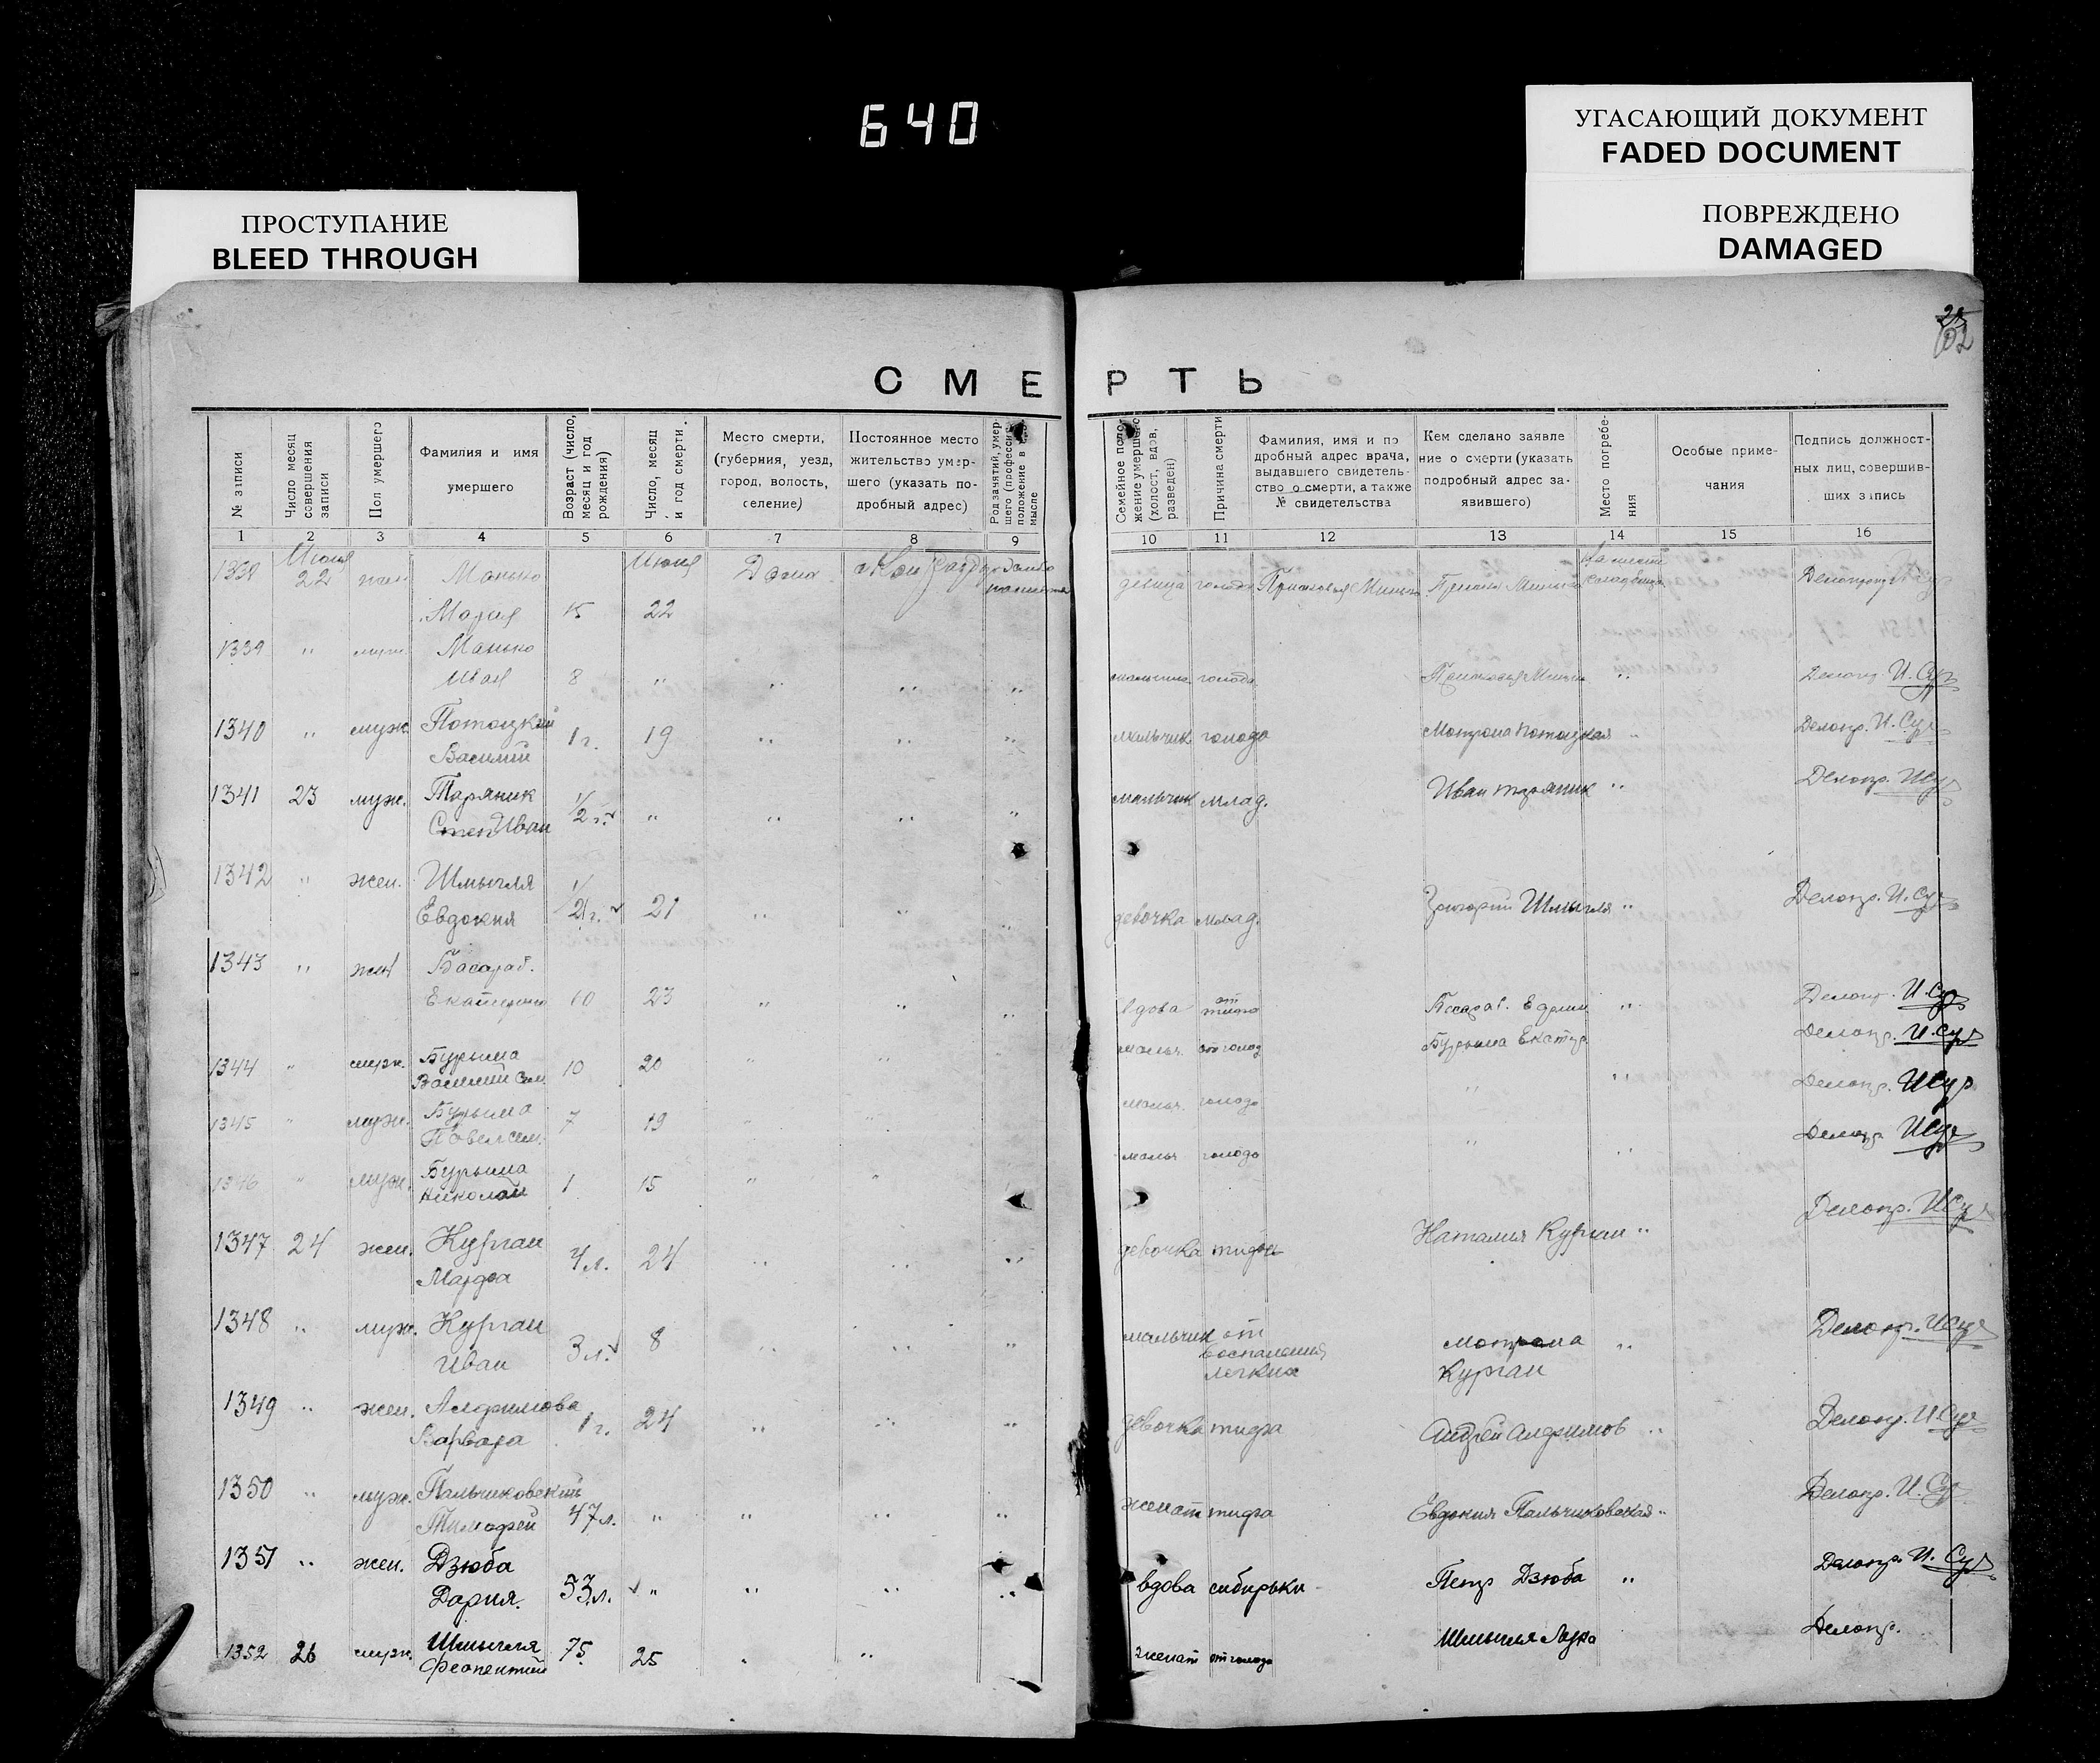 640
УГАСАЮЩИЙ ДОКУМЕНТ
FADED DOCUMENT
ПОВРЕЖДЕНО
DAMAGED
ПРОСТУПАНИЕ
BLEED THROUGH
СМЕРТЬ
№ записи
Число месяц совершения записи
Пол умершего
Фамилия и имя умершего
Возраст (число, месяц и год рождения)
Число, месяц и год смерти.
Место смерти, (губерния, уезд, город, волость, селение)
Постоянное место жительство умершего (указать подробный адрес)
Род занятий, умершего (профессия
Семейное положение умершего (холост, вдов, разведен)
Причина смерти
Фамилия, имя и подробный адрес врача, выдавшего свидетельство о смерти, а также № свидетельства
Кем сделано заявление о смерти (указать подробный адрес заявившего)
Место погребения
Особые примечания
Подпись должностных лиц, совершивших запись
1 2 3 4 5 6 7 8 9 10 11 12 13 14 15 16
Июня 22 Манько Мария 15 Июня 22 девица голода
1339 " муж. Манько Иван 8 " " " " голода " Делопр. И. Сур
1340 " муж. Потоцкий Василий 1 г. 19 " " " мальчик голода Мотрона Потоцкая " Делопр. И. Сур
1341 23 муж. Таряник Иван 1/2 г. " " " " мальчик млад. Иван Таряник " Делопр. И Сур
1342 " жен. Шмыгля Евдокия 1/2 г. 21 " " " девочка млад. Шмыгля " Делопр. И. Сур
1343 " Басараб. Екатерина 23 " " " вдова от тифа " Делопр. И. Сур
1344 " муж. Бурыма Василий Сем. 10 20 " " мальч. от голод Бурыма Екатер. Делопр. И. Сур
1345 " муж. Бурыма Павел Сем. 7 19 " " мальч. голода " " Делопр. И Сур
1346 " муж. Бурыма Николай 1 15 " " мальч голода " " Делопр. И Сур
1347 24 жен. Курган Марфа 4 л. 24 " " " девочка тифа Наталия Курган " Делопр. И Сур
1348 " муж. Курган Иван 3 л. 8 " " " мальчик от воспаления легких Мотрона Курган " Делопр. И Сур
1349 " жен. Алфимова Варвара 1 г. 24 " " " девочка тифа Андрей Алфимов " Делопр. И. Сур
1350 " муж. Пальчиковский Тимофей 47 л. " " " " женат тифа Евдокия Пальчиковская " Делопр. И. Сур
1351 " жен. Дзюба Дария. 53 л. " " " " вдова сибирьки Петр Дзюба " Делопр. И. Сур
1352 26 муж. Шмыгля 75 25 " " женат от голода Шмыгля Делопр.